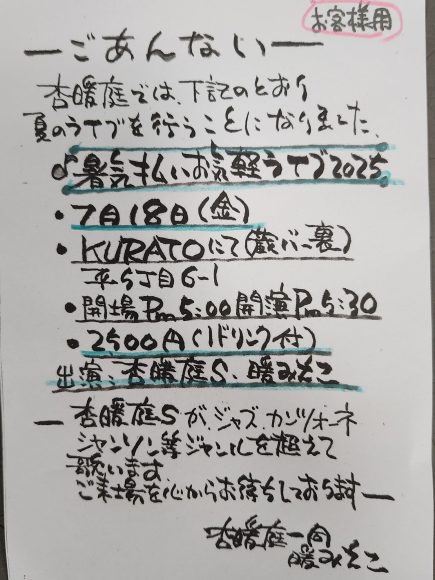 お客様用
―ごあんない―
杏暖庭では、下記のとおり
夏のライブを行うことになりました、
♪暑気払いお気軽ライブ2025
・7月18日(金)
・KURATOにて(蔵バー裏)
平5丁目6-1
・開場Pm5:00開演Pm5:30
・2500円(1ドリンク付)
出演:杏暖庭S、暖みえこ
―杏暖庭Sがジャズ、カンツォーネ
シャンソン等ジャンルを超えて
歌います
ご来場を心からお待ちしております―
杏暖庭一同
暖みえこ